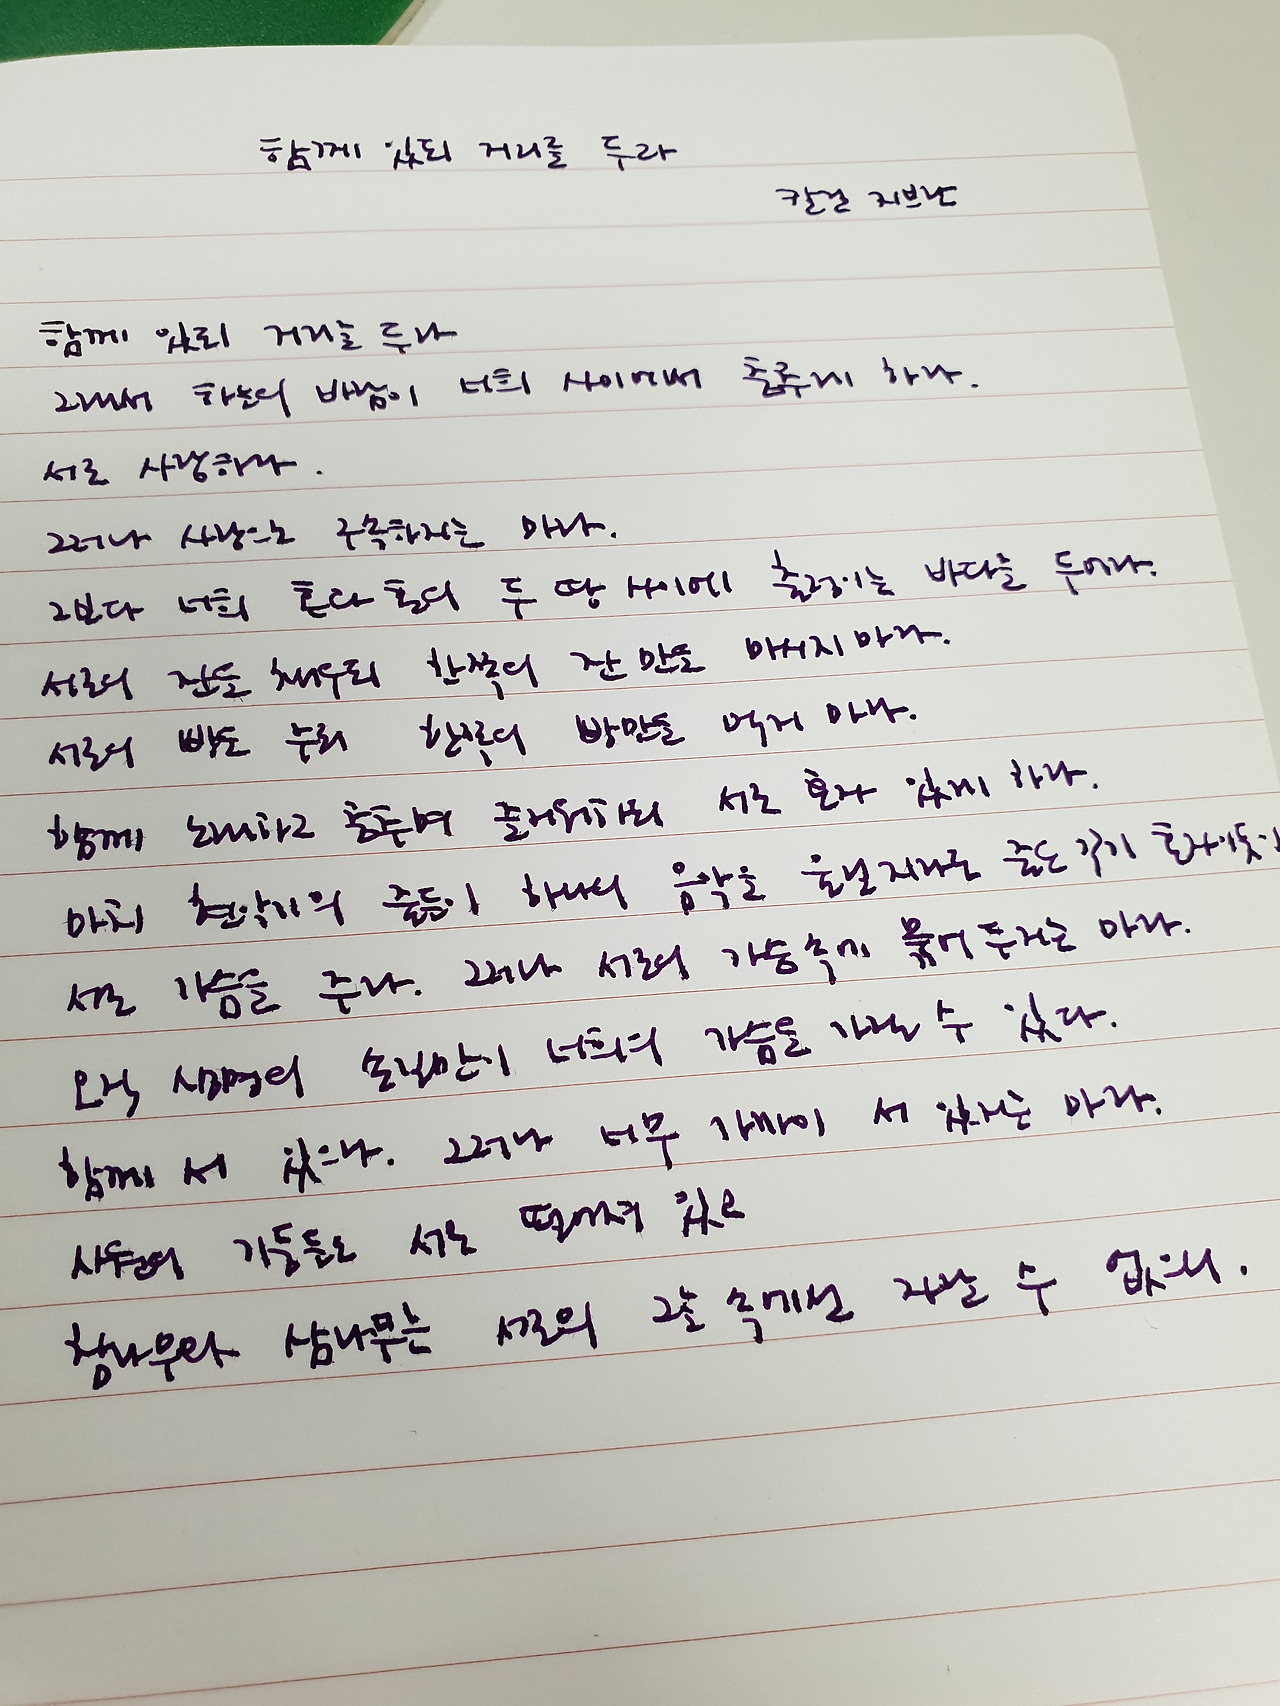 함께 있되 거리를 두라
칼릴 지브란
함께 있되 거리를 두라
그래서 하늘의 바람이 너희 사이에서 춤추게 하라.
서로 사랑하라.
그러나 사랑으로 구속하지는 마라.
그보다 너희 혼과 혼의 두 땅 사이에 출렁이는 바다를 두어라.
서로의 잔을 채우되 한쪽의 잔만을 마시지 마라.
서로의 빵을 누되 한쪽의 빵만을 먹게 마라.
함께 노래하고 춤추며 즐거워하되 서로 혼자 있게 하라.
마치 현악기의 줄들이 하나의 음악을 울릴지라도 줄은 각기 혼자이듯이
서로 가슴을 주라. 그러나 서로의 가슴속에 묶어 두지는 마라.
오직 생명의 손길만이 너희의 가슴을 가질 수 있다.
함께 서 있으라. 그러나 너무 가까이 서 있지는 마라.
사원의 기둥들도 서로 떨어져 있고
참나무와 삼나무는 서로의 그늘 속에선 자랄 수 없으니.